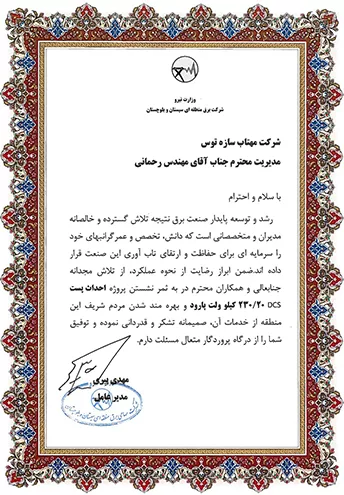 وزارت نیرو
شرکت برق منطقه ای سیستان و بلوچستان
شرکت مهتاب سازه توس
مدیریت محترم جناب آقای مهندس رحمانی
با سلام و احترام
رشد و توسعه پایدار صنعت برق نتیجه تلاش گسترده و خالصانه
مدیران و متخصصانی است که دانش، تخصص و عمرگرانبهای خود
را سرمایه ای برای حفاظت و ارتقای تاب آوری این صنعت قرار
داده اند.ضمن ابراز رضایت از نحوه عملکرد، از تلاش مجدانه
جنابعالی و همکاران محترم در به ثمر نشستن پروژه احداث پست
DCS ۲۳۰/۲۰ کیلو ولت پارود و بهره مند شدن مردم شریف این
منطقه از خدمات آن، صمیمانه تشکر و قدردانی نموده و توفیق
شما را از درگاه پروردگار متعال مسئلت دارم.
مهدی
مدیر عامل